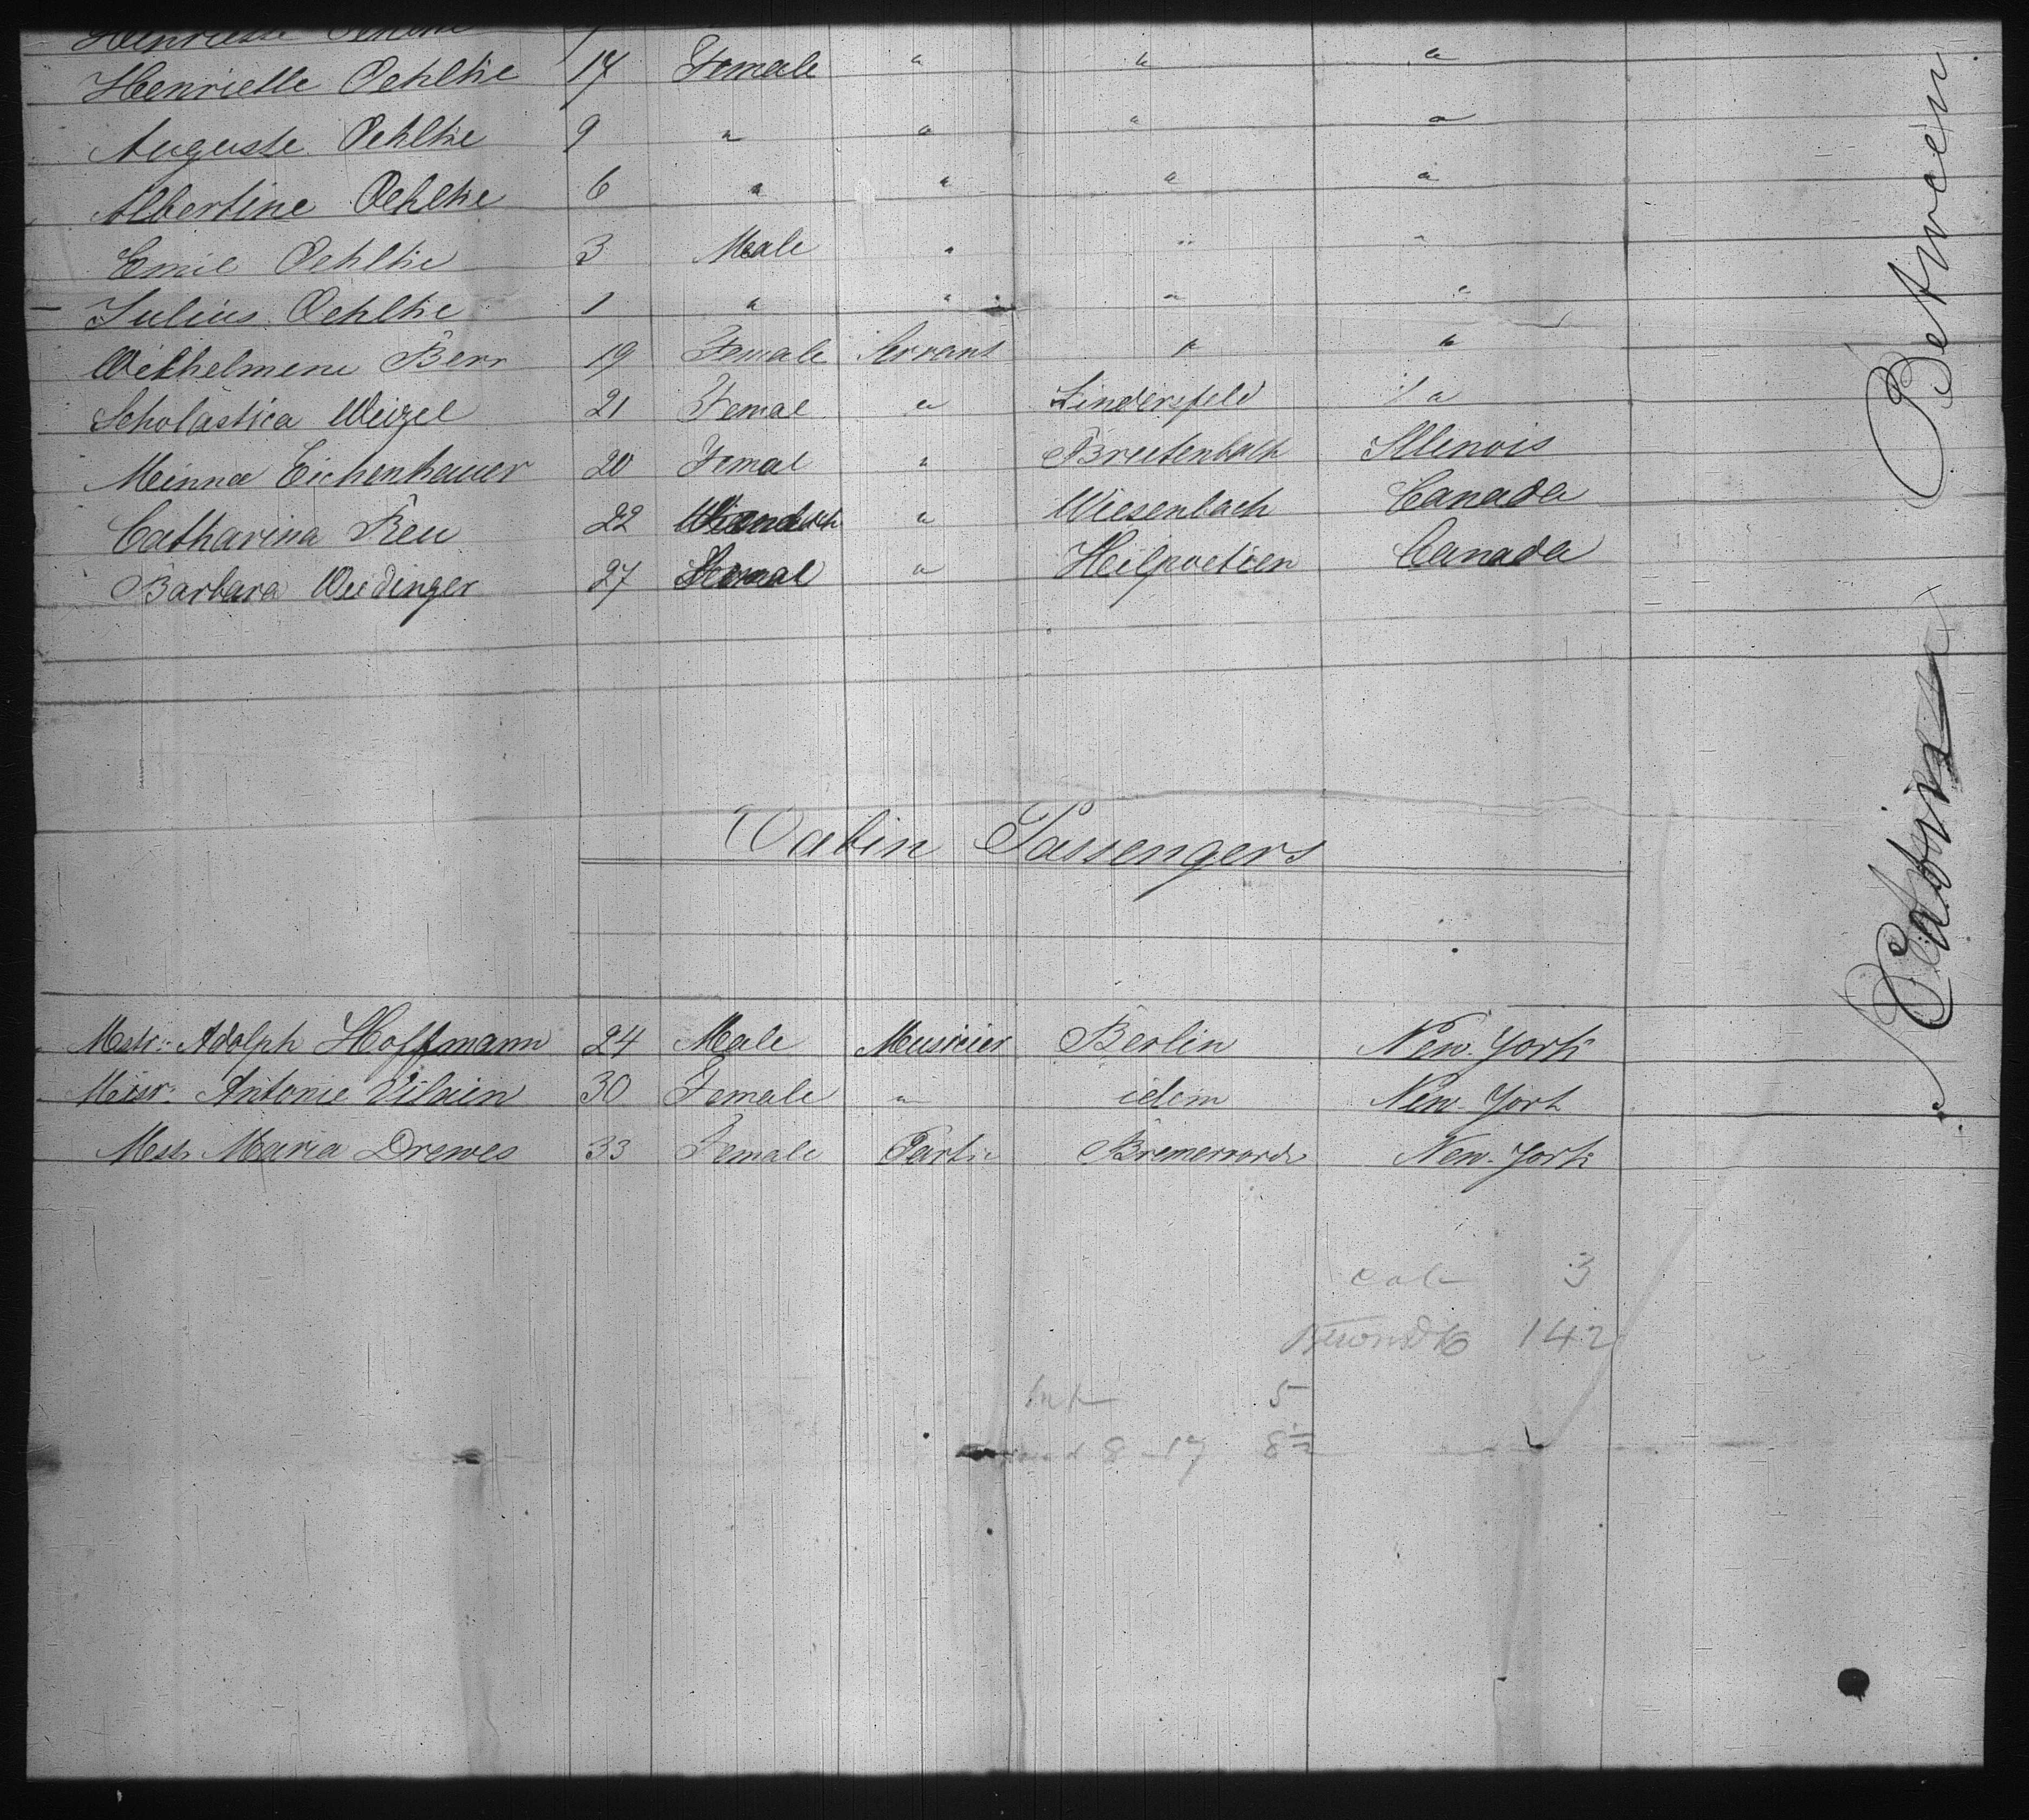 Henriette Oehlke 17 Female " " "
Auguste Oehlke 9 " " " "
Albertine Oehlke 6 " " " "
Emil Oehlke 3 Male " " "
Julius Oehlke 1 " " " "
Wilhelmene Berr 19 Female Servant " "
Scholastica Weizel 21 Femal " Lindersfeld "
Minna Eichenhauer 20 Femal " Breitenbach Illinois
Catharina Reu 22 " Wiesenbach Canada
Barbara Weidinger 27 Femal " Canada
Cabin Passengers
Mstr. Adolph Hoffmann 24 Male Musicier Berlin New-York
Antonie 30 Female " idem New-York
Maria Drewes 33 Female Partic New-York
cab 3
142
Inf 5
8 17 8
Between
Cabin